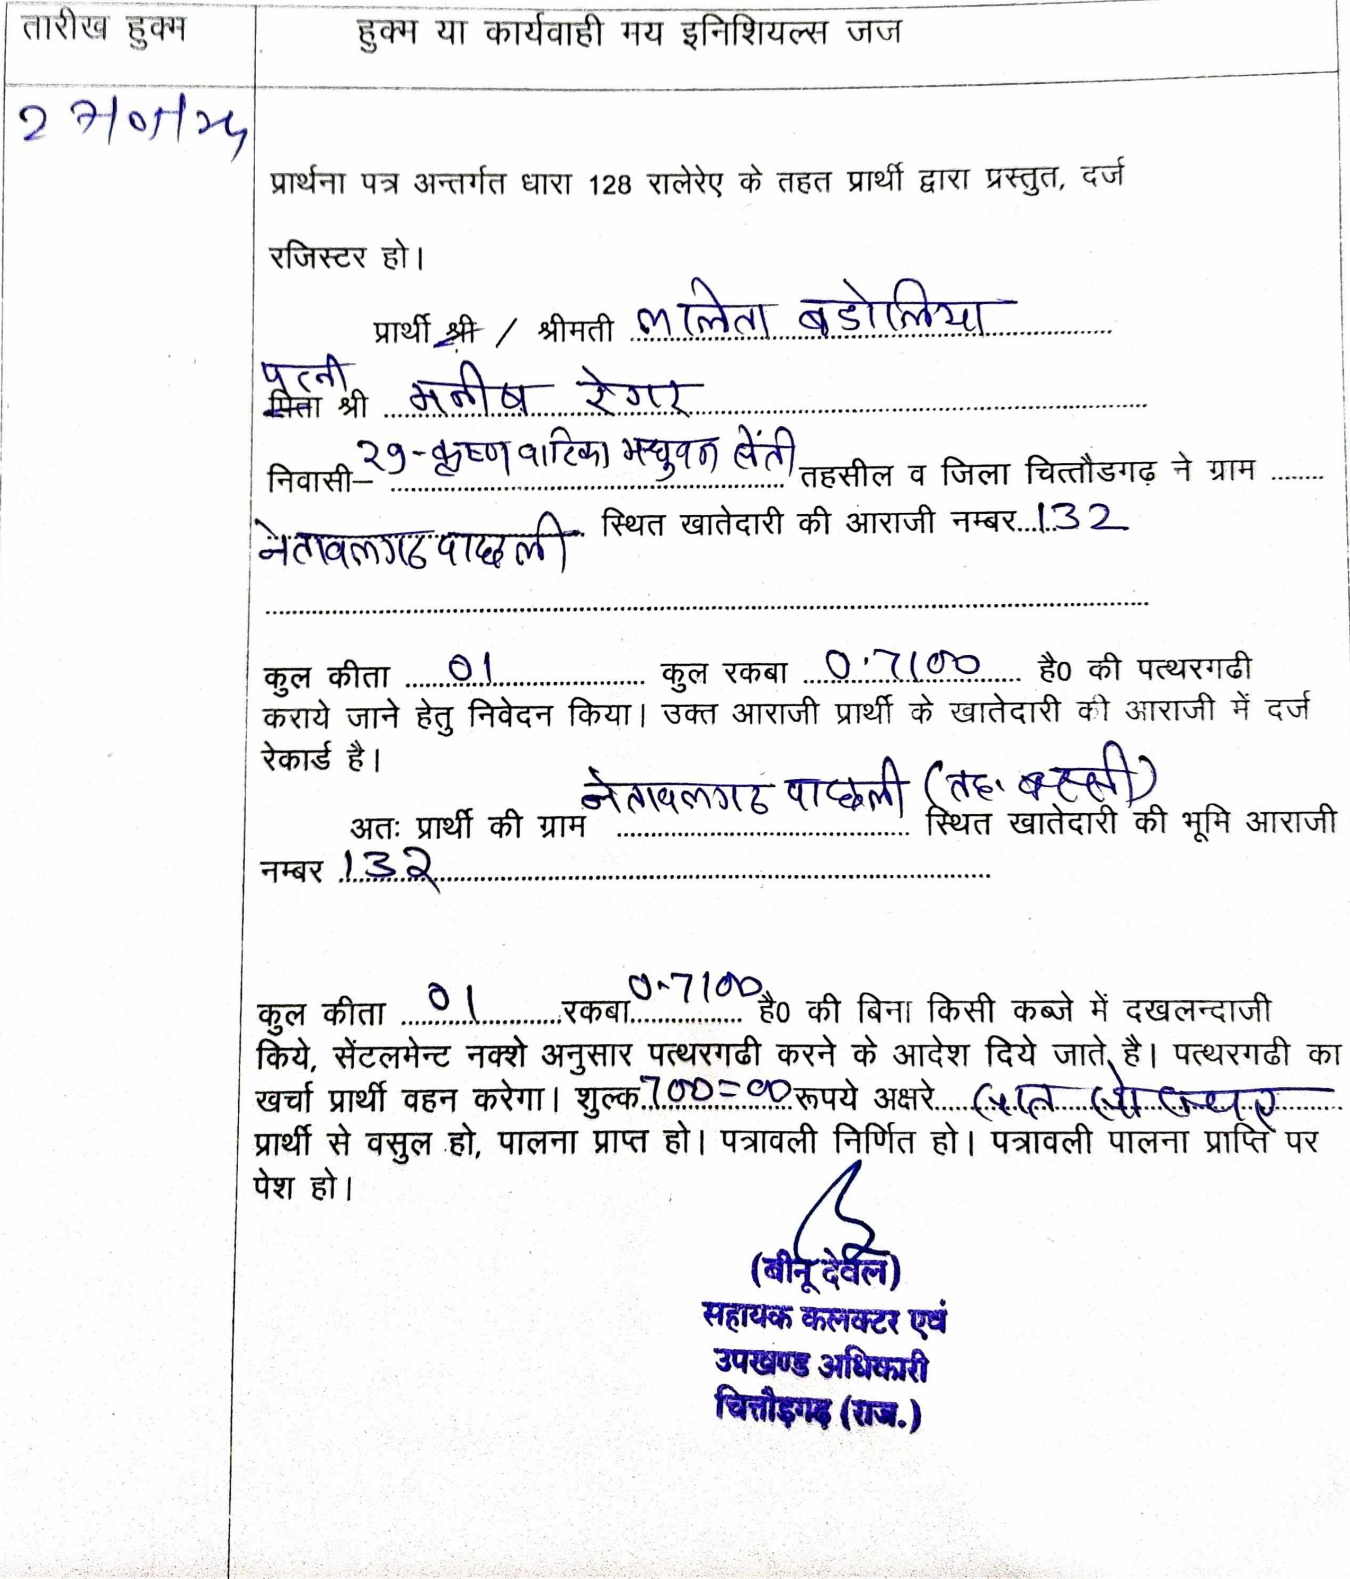 तारीख हुक्म हुक्म या कार्यवाही मय इनिशियल्स जज
27/01/25
प्रार्थना पत्र अन्तर्गत धारा 128 रालेरेए के तहत प्रार्थी द्वारा प्रस्तुत, दर्ज
रजिस्टर हो।
प्रार्थी श्री / श्रीमती ललिता बडोलिया
पत्नी
पिता श्री मनीष रेगर
निवासी– 29-कृष्ण वाटिका मधुवन सेंती तहसील व जिला चित्तौडगढ़ ने ग्राम ........
नेतावलगढ पाछली स्थित खातेदारी की आराजी नम्बर...132
कुल कीता ...01... कुल रकबा ...0.7100... है0 की पत्थरगढी
कराये जाने हेतु निवेदन किया। उक्त आराजी प्रार्थी के खातेदारी की आराजी में दर्ज
रेकार्ड है।
नेतावलगढ पाछली (तह. बस्सी)
अतः प्रार्थी की ग्राम ........ स्थित खातेदारी की भूमि आराजी
नम्बर 132
कुल कीता ...01...रकबा 0.7100 है0 की बिना किसी कब्जे में दखलन्दाजी
किये, सेंटलमेन्ट नक्शे अनुसार पत्थरगढी करने के आदेश दिये जाते है। पत्थरगढी का
खर्चा प्रार्थी वहन करेगा। शुल्क 700=00 रूपये अक्षरे....
प्रार्थी से वसुल हो, पालना प्राप्त हो। पत्रावली निर्णित हो। पत्रावली पालना प्राप्ति पर
पेश हो।
(बीनू देवल)
सहायक कलक्टर एवं
उपखण्ड अधिकारी
चित्तौड़गढ़ (राज.)